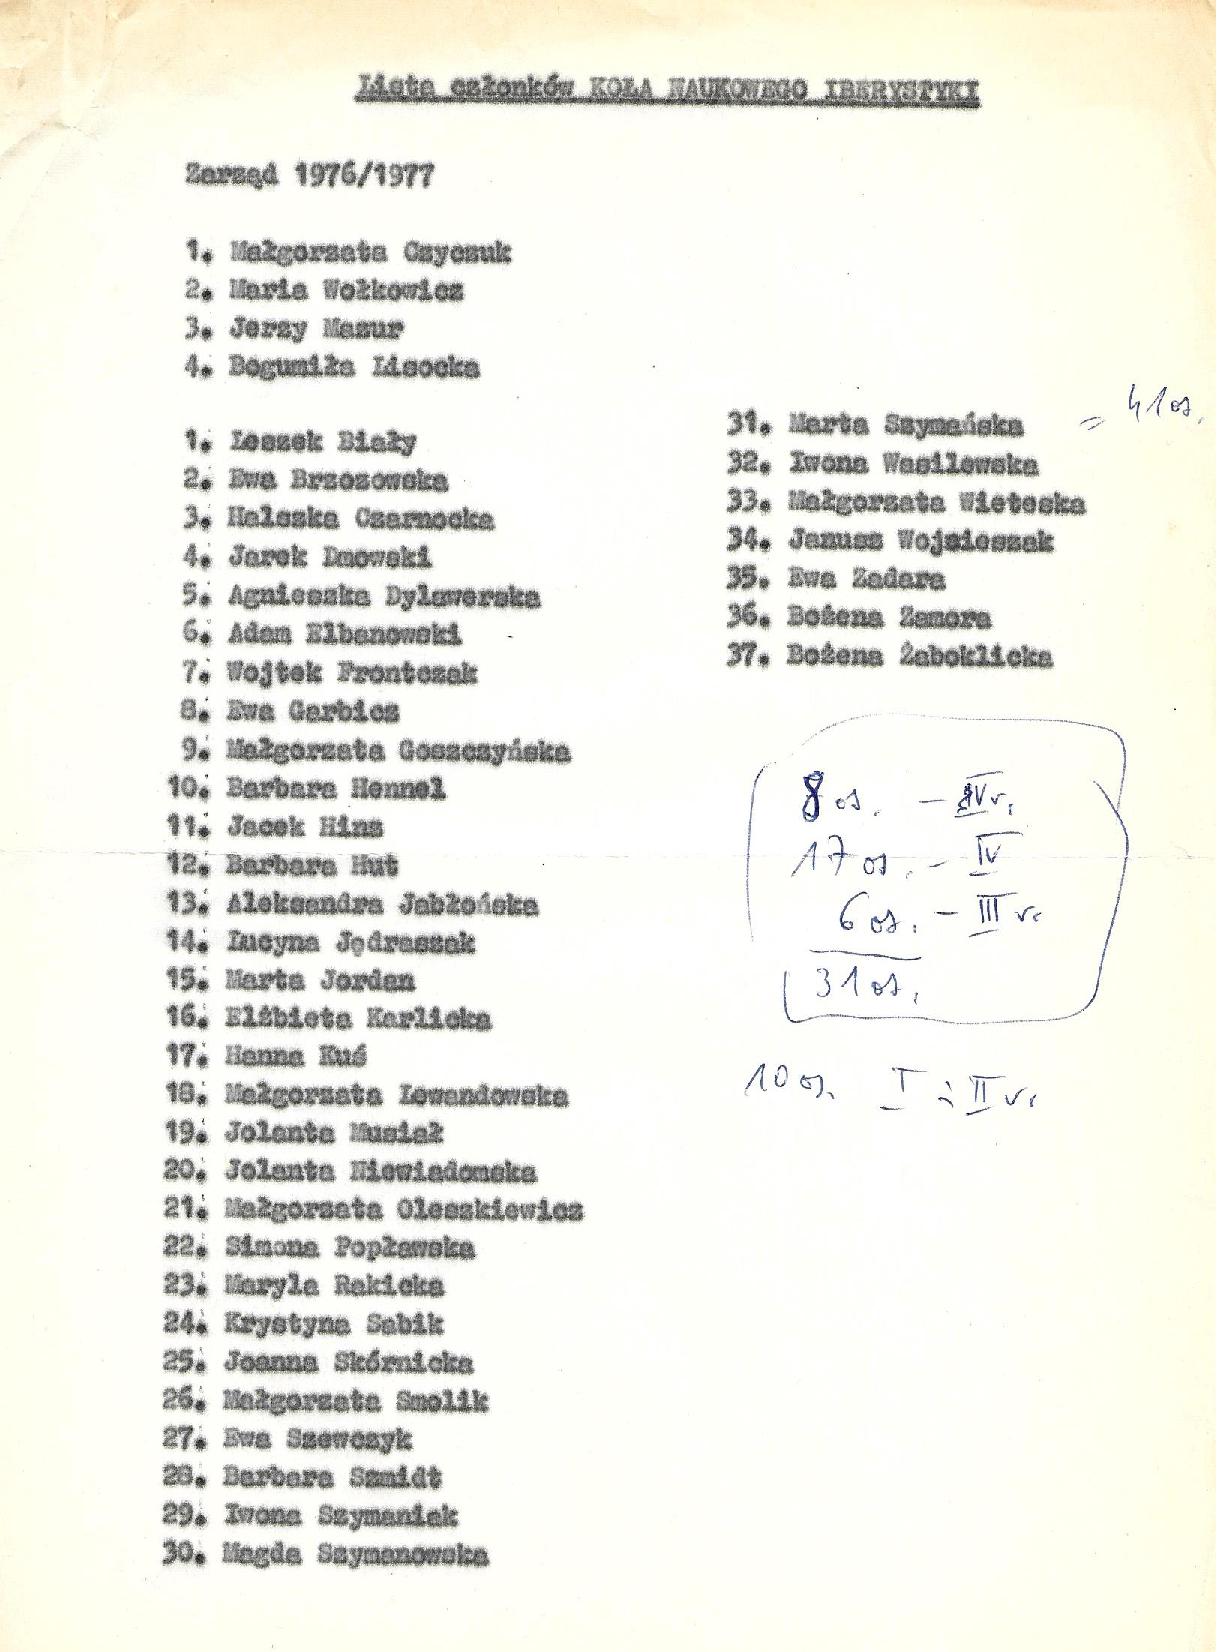 Lista członków KOŁA NAUKOWEGO IBERYSTYKI
Zarząd 1976/1977
1. Małgorzata Czyczuk
2. Maria Wołkowicz
3. Jerzy Mazur
4. Bogumiła Lisocka
1. Leszek Biały
2. Ewa Brzozowska
3. Haleszka Czarnocka
4. Jarek Dmowski
5. Agnieszka Dylawerska
6. Adam Elbanowski
7. Wojtek Frontczak
8. Ewa Garbicz
9. Małgorzata Goszczyńska
10. Barbara Hennel
11. Jacek Hinz
12. Barbara Hut
13. Aleksandra Jabłońska
14. Lucyna Jędraszak
15. Marta Jordan
16. Elżbieta Karlicka
17. Hanna Kuś
18. Małgorzata Lewandowska
19. Jolanta Musiał
20. Jolanta Niewiadomska
21. Małgorzata Oleszkiewicz
22. Simona Popławska
23. Maryla Rakicka
24. Krystyna Sabik
25. Joanna Skórnicka
26. Małgorzata Smolik
27. Ewa Szewczyk
28. Barbara Szmidt
29. Iwona Szymaniak
30. Magda Szymanowska
31. Marta Szymańska = 41 os.
32. Iwona Wasilewska
33. Małgorzata Wieteska
34. Janusz Wojcieszak
35. Ewa Zadara
36. Bożena Zamora
37. Bożena Żaboklicka
8 os. – IV r.
17 os. – IV
6 os. – III r.
31 os.
10 os. I i II r.